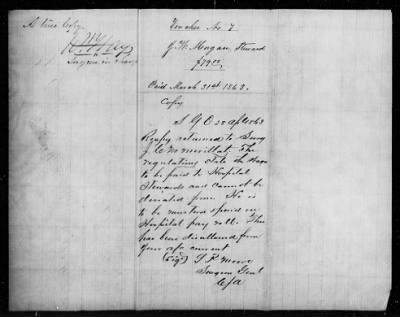 A true Copy
Surgeon in charge
Voucher No. 7
J. W. Morgan, Steward
Paid March 31st 1863.
Copy
S G O 22 Apl 1863
Respy returned to Surg
J. C. M. Merillat. The
regulating state the
to be paid to Hospital
Stewards and cannot be
deviated from. He is
to be mustered & paid on
Hospital pay roll. This
has been disallowed from
your a/c current
(Sig) S. P. Moore
Surgeon Genl
CSA